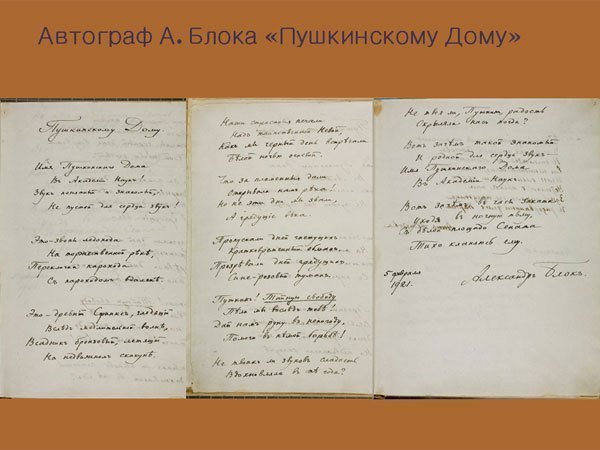 Автограф А. Блока «Пушкинскому Дому»
Пушкинскому Дому.
Имя Пушкинскаго Дома
Въ Академіи Наукъ!
Звукъ понятный и знакомый,
Не пустой для сердца звукъ!
Это - звоны ледохода
На торжественной рѣкѣ,
Перекличка парохода
Съ пароходомъ вдалекѣ.
Это - древній Сфинксъ, глядящій
Вслѣдъ медлительной волнѣ,
Всадникъ бронзовый, летящій
На недвижномъ скакунѣ.
Наши страстныя печали
Надъ таинственной Невой,
Какъ мы черный день встрѣчали
Бѣлой ночью огневой.
Что за пламенныя дали
Открывала намъ рѣка!
Но не эти дни мы звали,
А грядущіе вѣка.
Пропуская дней гнетущихъ
Кратковременный обманъ,
Прозрѣвали дней грядущихъ
Сине-розовый туманъ.
Пушкинъ! Тайную свободу
Пѣли мы вослѣдъ тебѣ!
Дай намъ руку въ непогоду,
Помоги въ нѣмой борьбѣ!
Не твоихъ ли звуковъ сладость
Вдохновляла въ тѣ года?
Не твоя ли, Пушкинъ, радость
Окрыляла насъ тогда?
Вотъ зачѣмъ такой знакомый
И родной для сердца звукъ -
Имя Пушкинскаго Дома
Въ Академіи Наукъ.
Вотъ зачѣмъ, въ часы заката
Уходя въ ночную тьму,
Съ бѣлой площади Сената
Тихо кланяюсь ему.
5 февраля
1921.
Александръ Блокъ.